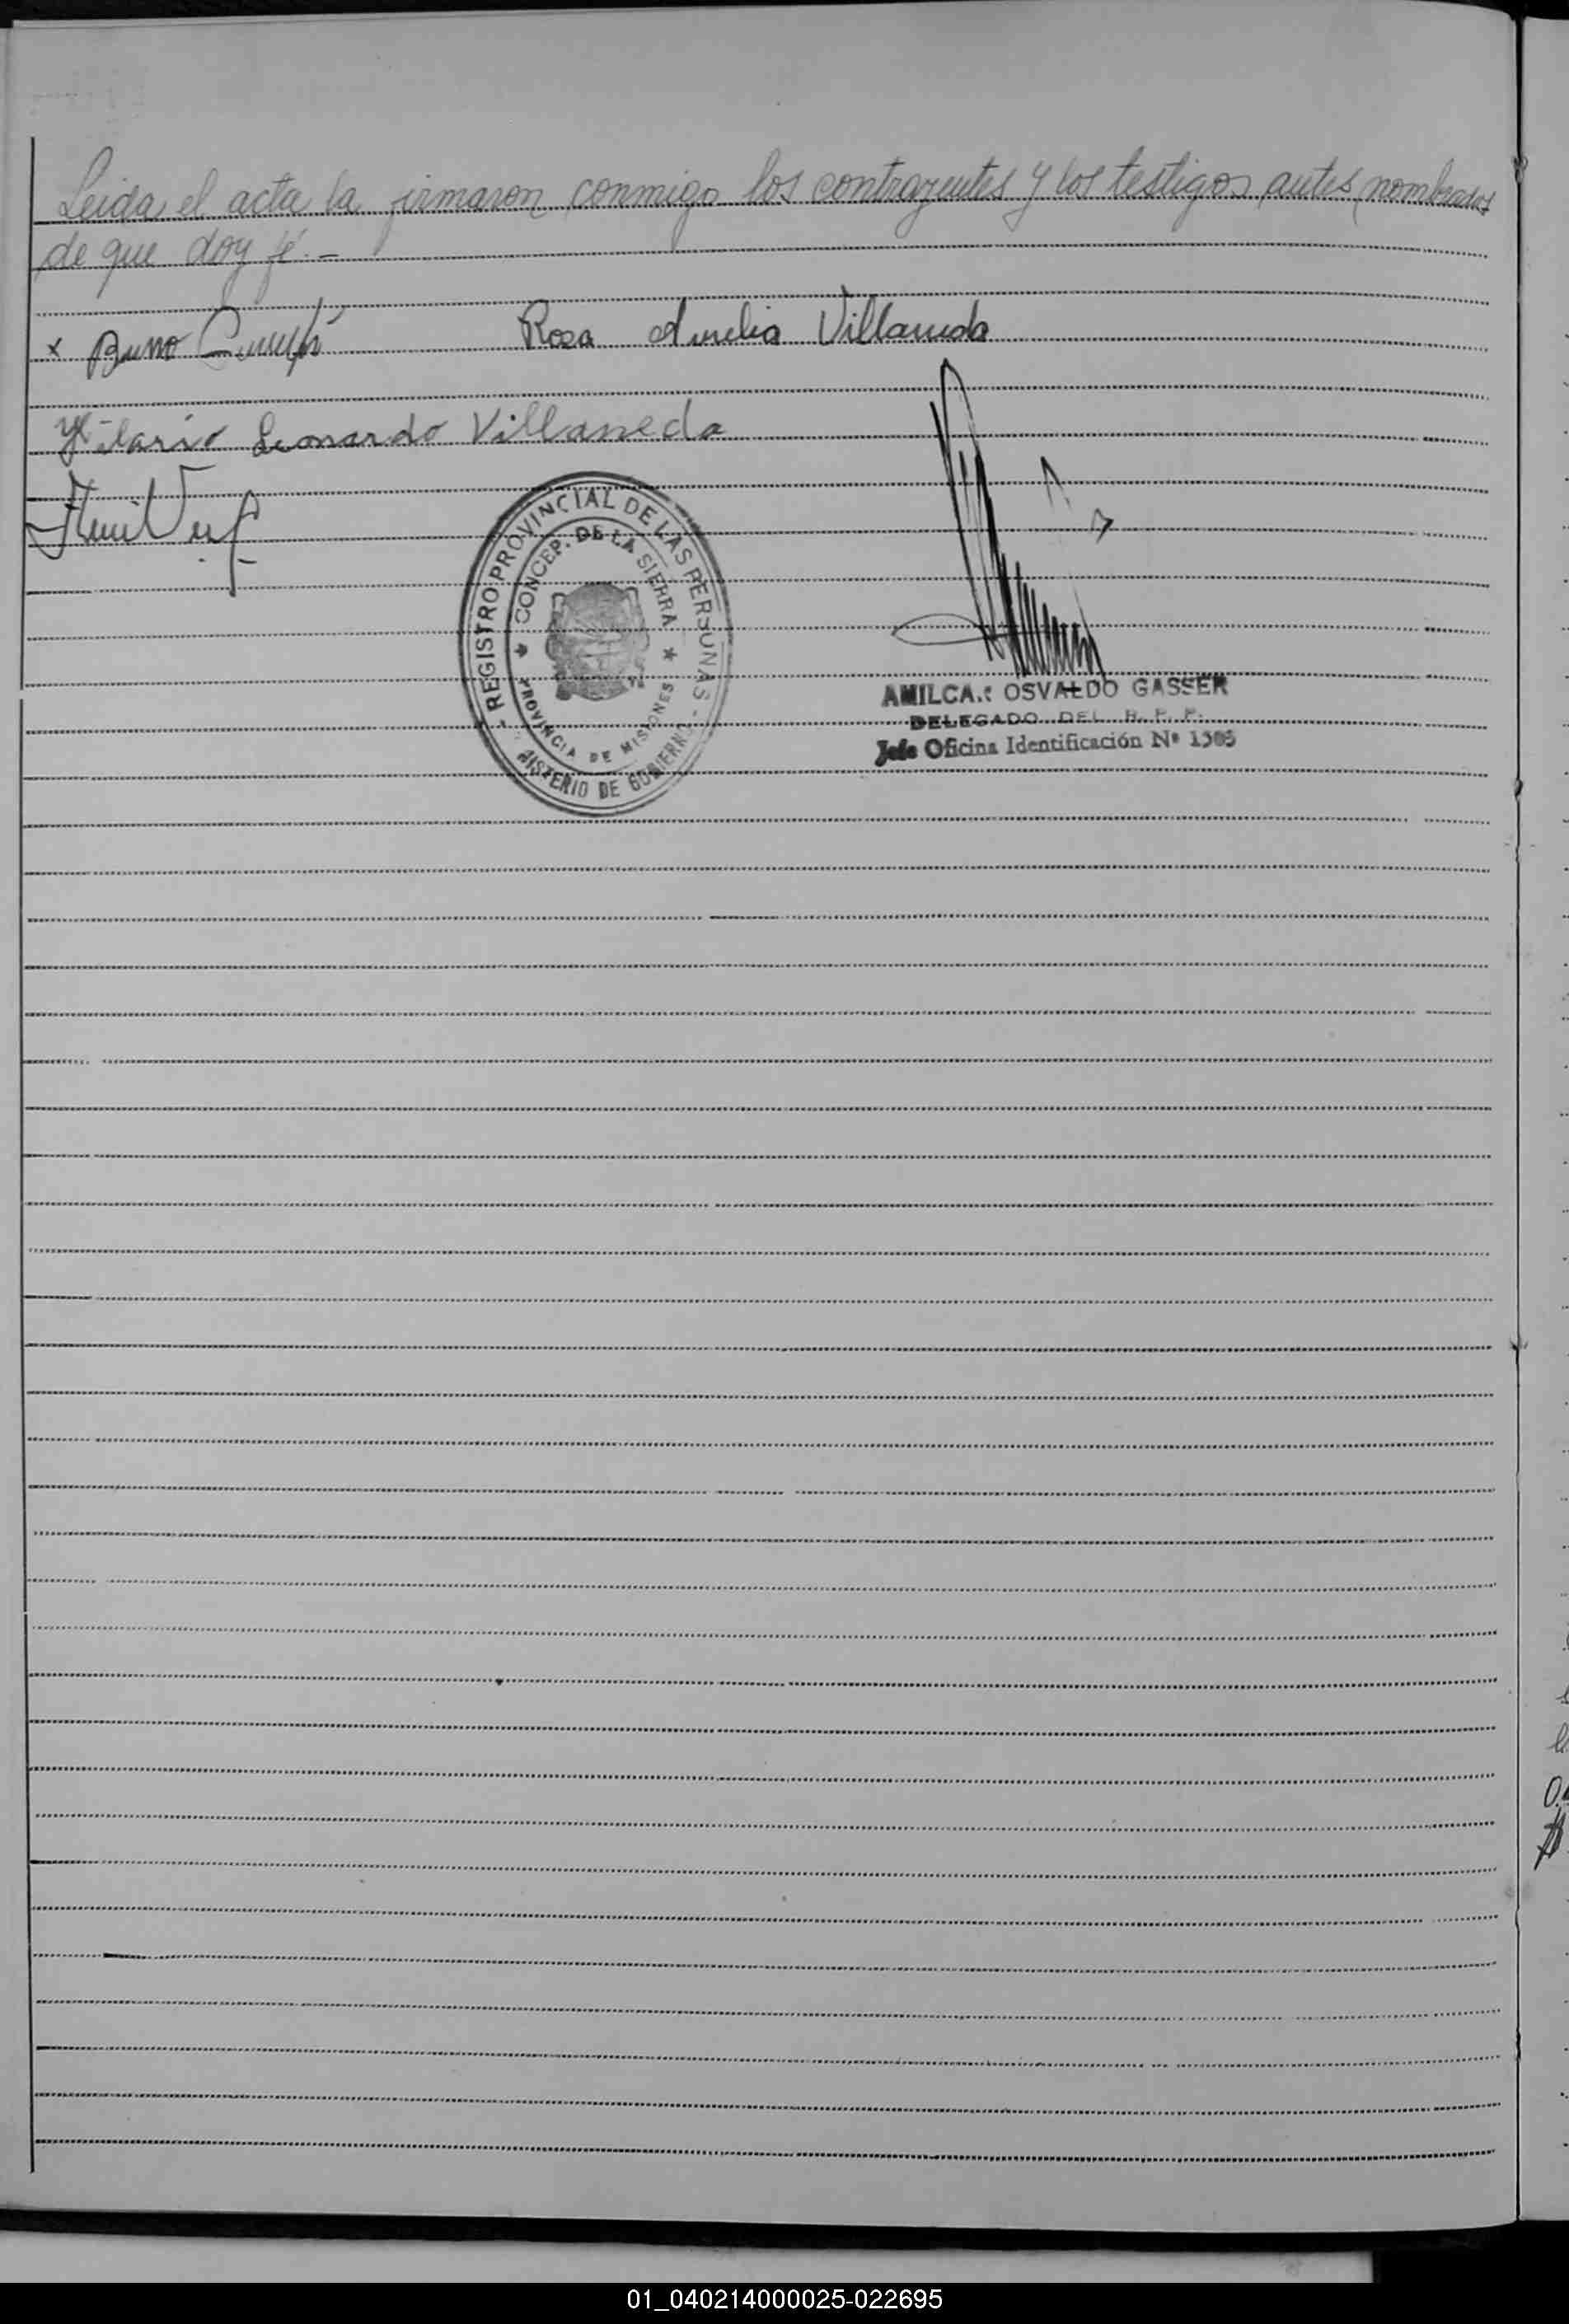 Leida el acta la firmaron conmigo los contrayentes y los testigos antes nombrados
de que doy fé.-
x Bruno
Rosa Aurelia Villaneda
Hilario Leonardo Villaneda
- REGISTRO PROVINCIAL DE LAS PERSONAS -
CONCEP. DE LA SIERRA
PROVINCIA DE MISIONES
NISTERIO DE GOBIERNO
AMILCA. OSVALDO GASSER
DELEGADO DEL R. P. P.
Jefe Oficina Identificación Nº 1305
01_040214000025-022695